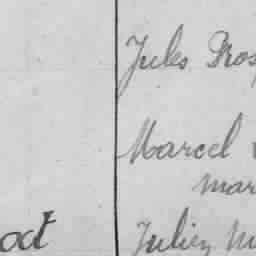 Jules Pros
Marcel
mar
oct Julien M